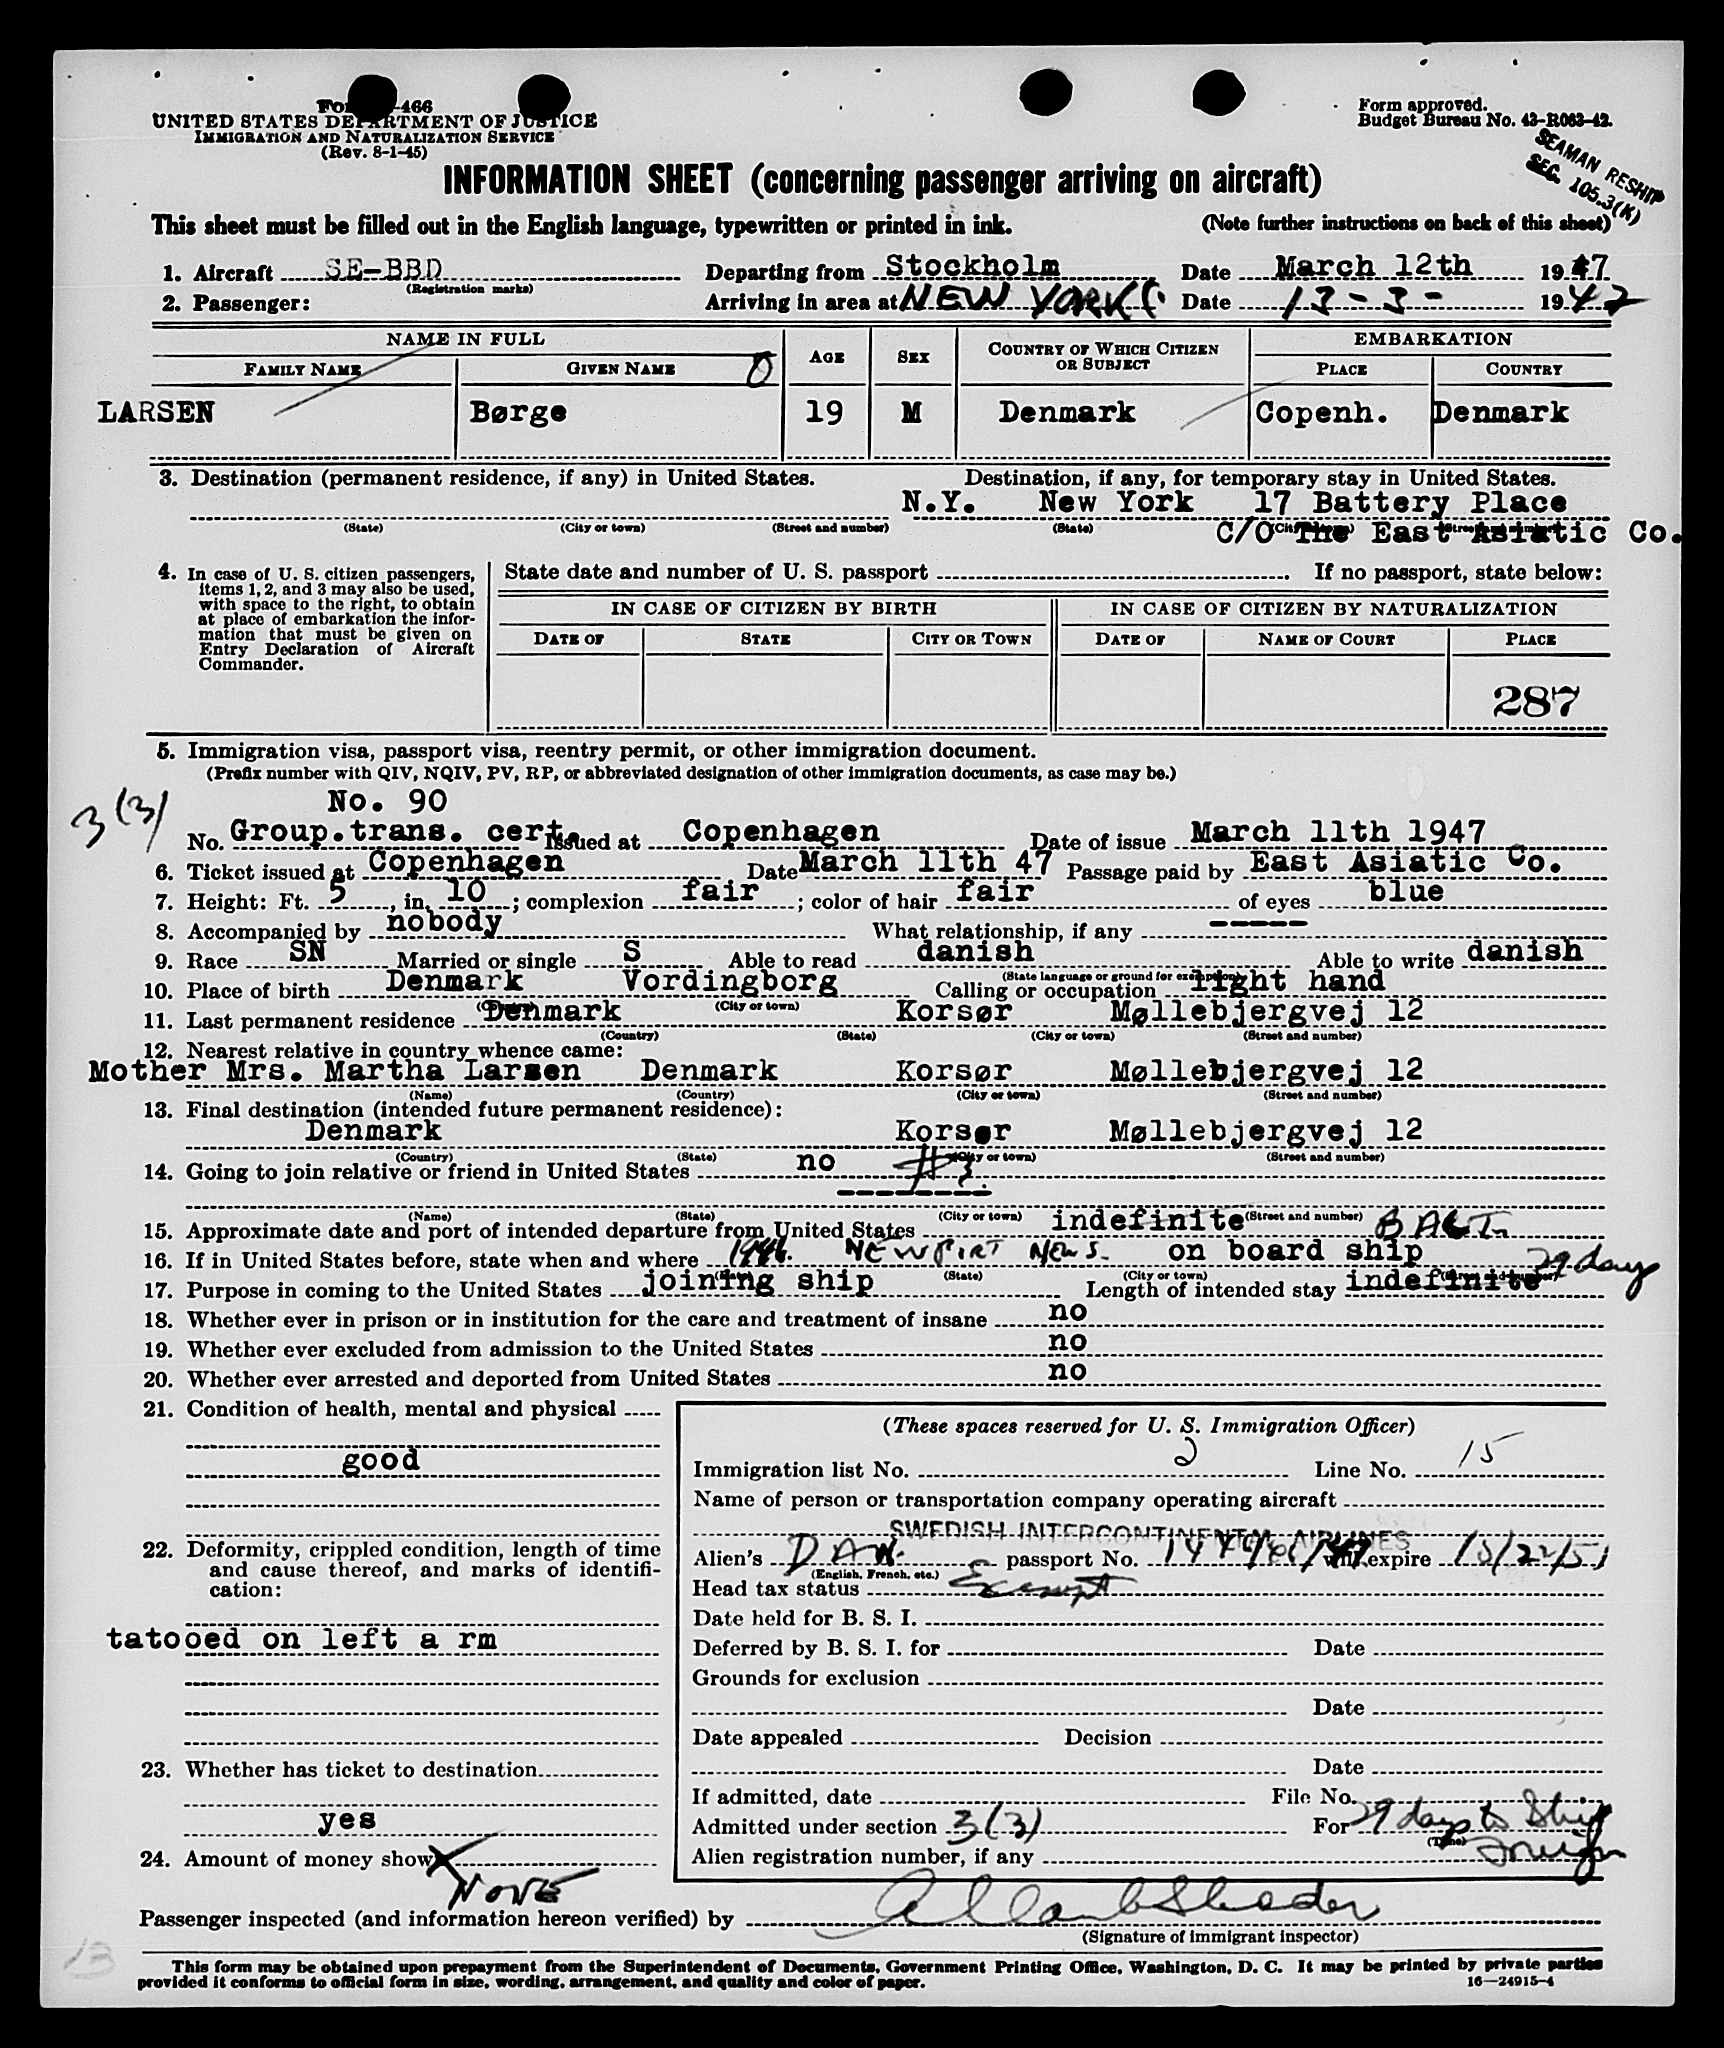 -466
UNITED STATES DEPARTMENT OF JUSTICE
IMMIGRATION AND NATURALIZATION SERVICE
(Rev. 8-1-45)
Form approved.
Budget Bureau No. 43-R063-42.
SEAMAN RESHIP
SEC. 105.3(K)
INFORMATION SHEET (concerning passenger arriving on aircraft)
This sheet must be filled out in the English language, typewritten or printed in ink. (Note further instructions on back of this sheet)
1. Aircraft SE-BBD Departing from Stockholm Date March 12th 1947
(Registration marks)
2. Passenger: Arriving in area at NEW YORK Date 13-3- 1947
NAME IN FULL EMBARKATION
FAMILY NAME GIVEN NAME AGE SEX COUNTRY OF WHICH CITIZEN OR SUBJECT PLACE COUNTRY
LARSEN Børge 19 M Denmark Copenh. Denmark
3. Destination (permanent residence, if any) in United States. Destination, if any, for temporary stay in United States.
N.Y. New York 17 Battery Place
(State) (City or town) (Street and number) (State) (City or town) (Street and number)
C/O The East Asiatic Co.
4. In case of U. S. citizen passengers, items 1, 2, and 3 may also be used, with space to the right, to obtain at place of embarkation the information that must be given on Entry Declaration of Aircraft Commander.
State date and number of U. S. passport If no passport, state below:
IN CASE OF CITIZEN BY BIRTH IN CASE OF CITIZEN BY NATURALIZATION
DATE OF STATE CITY OR TOWN DATE OF NAME OF COURT PLACE
287
5. Immigration visa, passport visa, reentry permit, or other immigration document.
(Prefix number with QIV, NQIV, PV, RP, or abbreviated designation of other immigration documents, as case may be.)
3(3)
No. 90
No. Group.trans. cert. Issued at Copenhagen Date of issue March 11th 1947
6. Ticket issued at Copenhagen Date March 11th 47 Passage paid by East Asiatic Co.
7. Height: Ft. 5, in. 10; complexion fair; color of hair fair of eyes blue
8. Accompanied by nobody What relationship, if any -----
9. Race SN Married or single S Able to read danish Able to write danish
(State language or ground for exemption)
10. Place of birth Denmark Vordingborg Calling or occupation right hand
(Country) (City or town)
11. Last permanent residence Denmark Korsør Møllebjergvej 12
(Country) (State) (City or town) (Street and number)
12. Nearest relative in country whence came:
Mother Mrs. Martha Larsen Denmark Korsør Møllebjergvej 12
(Name) (Country) (City or town) (Street and number)
13. Final destination (intended future permanent residence):
Denmark Korsør Møllebjergvej 12
(Country) (State) (City or town) (Street and number)
14. Going to join relative or friend in United States no
(Name) (State) (City or town) (Street and number)
15. Approximate date and port of intended departure from United States indefinite BALT.
16. If in United States before, state when and where 1946. NEWPORT NEWS. on board ship
(State) (City or town) (Street and number)
17. Purpose in coming to the United States joining ship Length of intended stay indefinite 29 days
18. Whether ever in prison or in institution for the care and treatment of insane no
19. Whether ever excluded from admission to the United States no
20. Whether ever arrested and deported from United States no
21. Condition of health, mental and physical
good
22. Deformity, crippled condition, length of time and cause thereof, and marks of identification:
tatooed on left a rm
23. Whether has ticket to destination
yes
24. Amount of money show
NONE
(These spaces reserved for U. S. Immigration Officer)
Immigration list No. 2 Line No. 15
Name of person or transportation company operating aircraft
SWEDISH INTERCONTINENTAL AIRLINES
Alien's DAN. passport No. will expire
(English, French, etc.)
Head tax status Exempt
Date held for B. S. I.
Deferred by B. S. I. for Date
Grounds for exclusion
Date
Date appealed Decision
Date
If admitted, date File No.
Admitted under section 3(3) For 29 days to Ship Foreign
(Time)
Alien registration number, if any
Passenger inspected (and information hereon verified) by
(Signature of immigrant inspector)
13
This form may be obtained upon prepayment from the Superintendent of Documents, Government Printing Office, Washington, D. C. It may be printed by private parties
provided it conforms to official form in size, wording, arrangement, and quality and color of paper. 16—24915-4